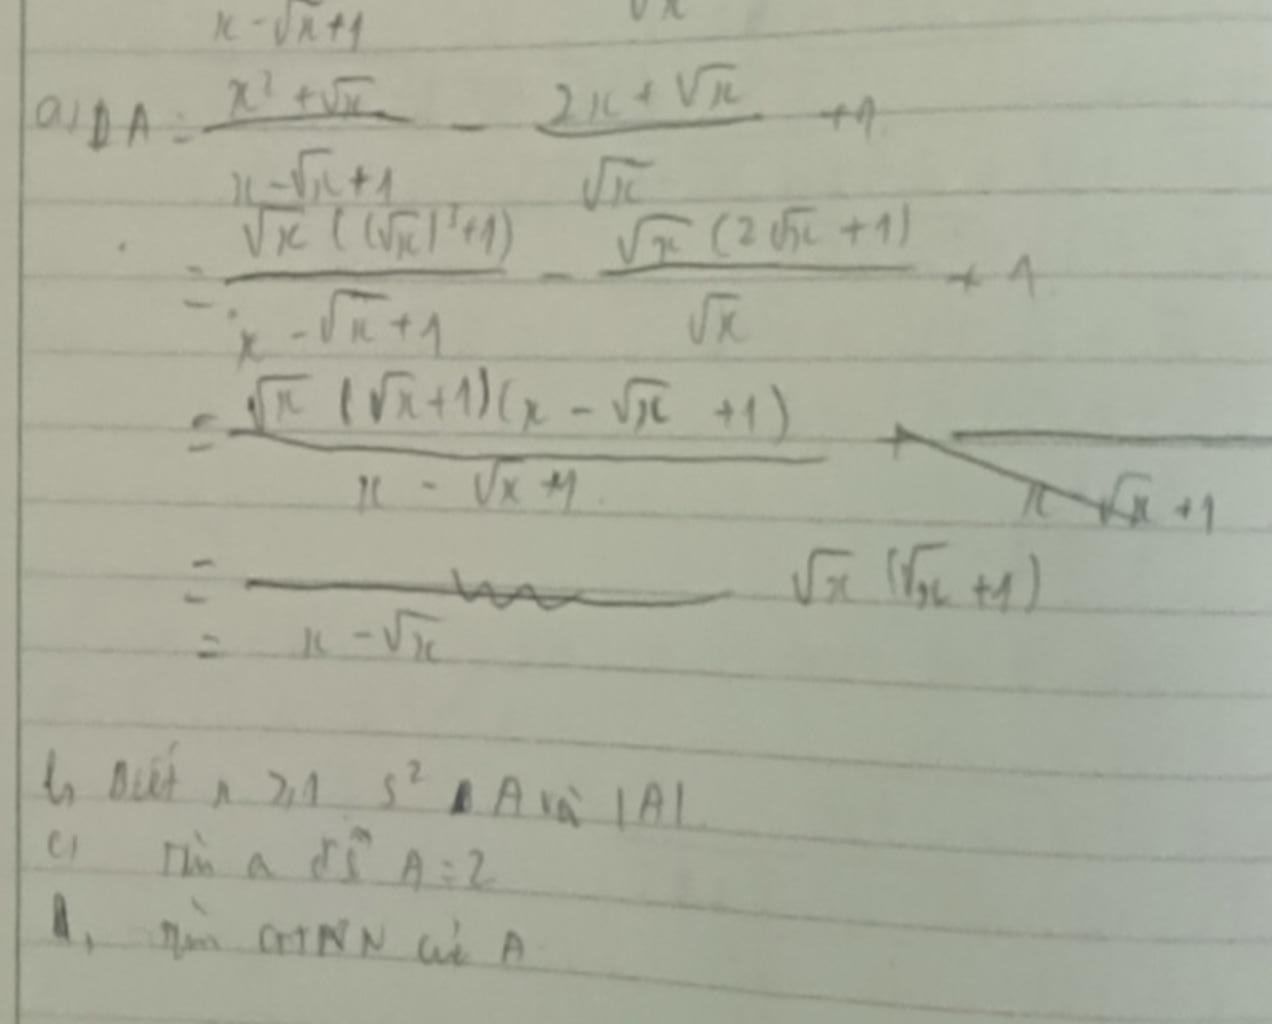 x - √x + 1 √x
a) A = (x² + √x)/(x - √x + 1) - (2x + √x)/√x + 1
= √x((√x)³ + 1)/(x - √x + 1) - √x(2√x + 1)/√x + 1
= √x(√x + 1)(x - √x + 1)/(x - √x + 1) x √x + 1
= √x(√x + 1)
= x - √x
b, Biết x ≥ 1 s² A và |A|
c) Tìm a để A = 2
d, Tìm GTNN của A